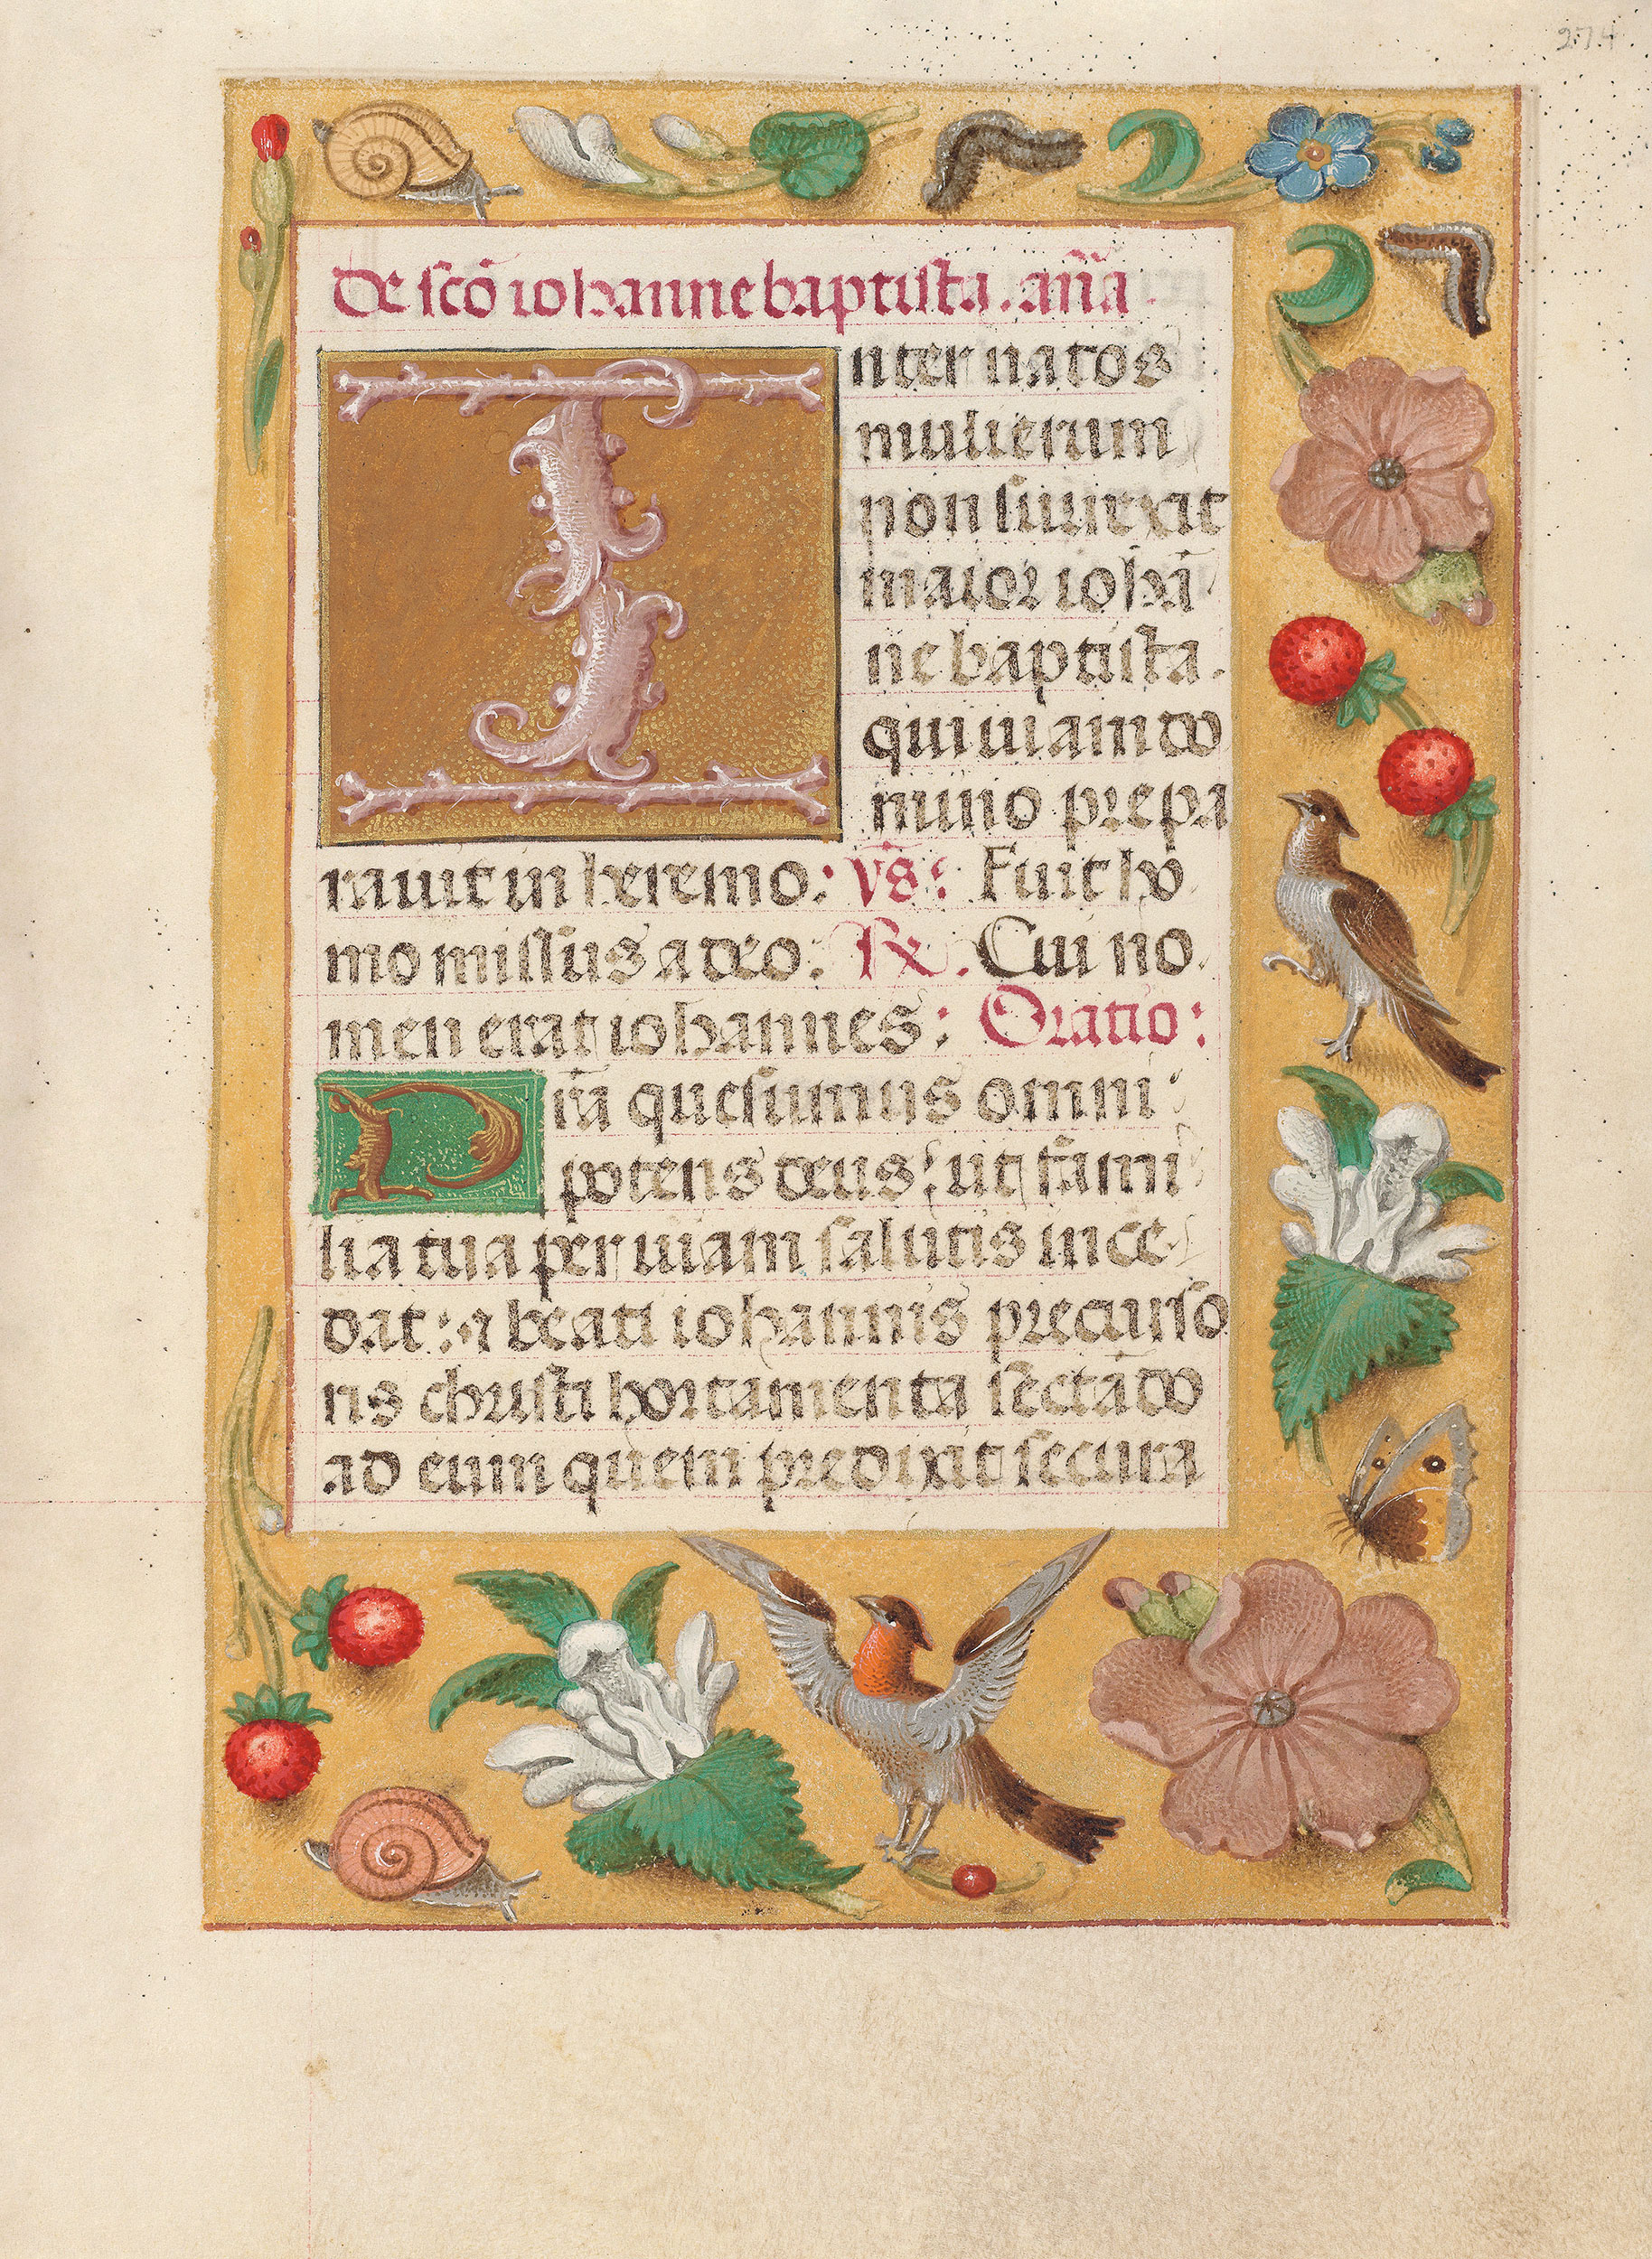 274
De scō iohanne baptista. añā.
Inter natos
mulierum
non surrexit
maior iohā
ne baptista.
qui uiam do
mino prepa
rauit in heremo: v̄s: Fuit ho
mo missus a deo: ℟. Cui no
men erat iohannes: Oratio:
Prā quesumus omni
potens deus: ut fami
lia tua per uiam salutis ince
dat: ⁊ beati iohannis precurso
ris christi hortamenta sectādo
ad eum quem predixit secura